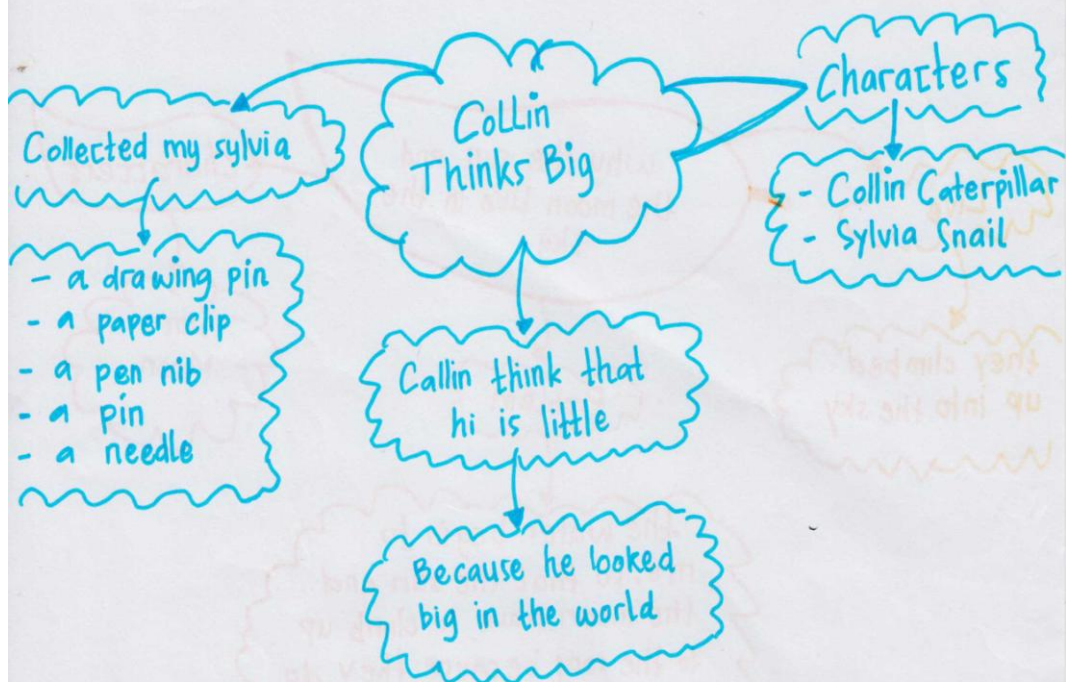 Collin
Thinks Big
Characters
- Collin Caterpillar
- Sylvia Snail
Collected my sylvia
- a drawing pin
- a paper clip
- a pen nib
- a pin
- a needle
Callin think that
hi is little
Because he looked
big in the world
they climbed
up into the sky